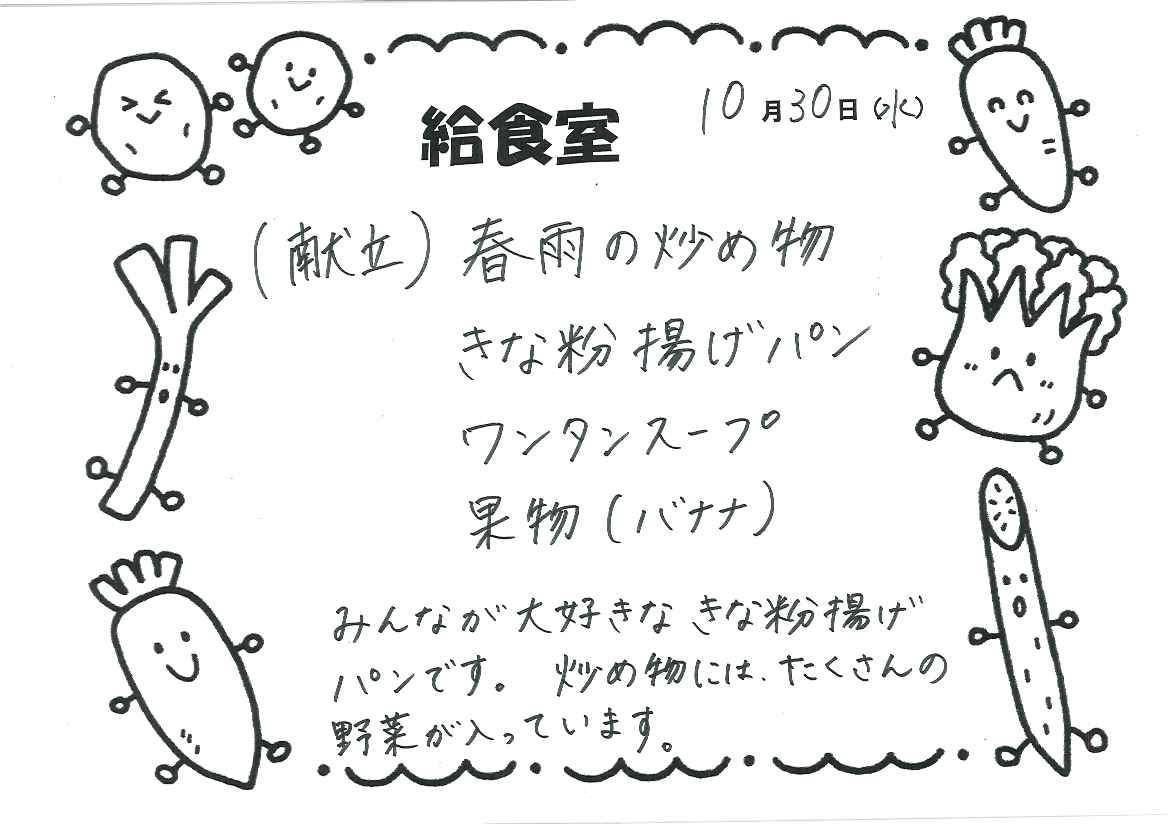 給食室
10月30日(水)
(献立) 春雨の炒め物
きな粉揚げパン
ワンタンスープ
果物(バナナ)
みんなが大好きな きな粉揚げ
パンです。 炒め物には、たくさんの
野菜が入っています。